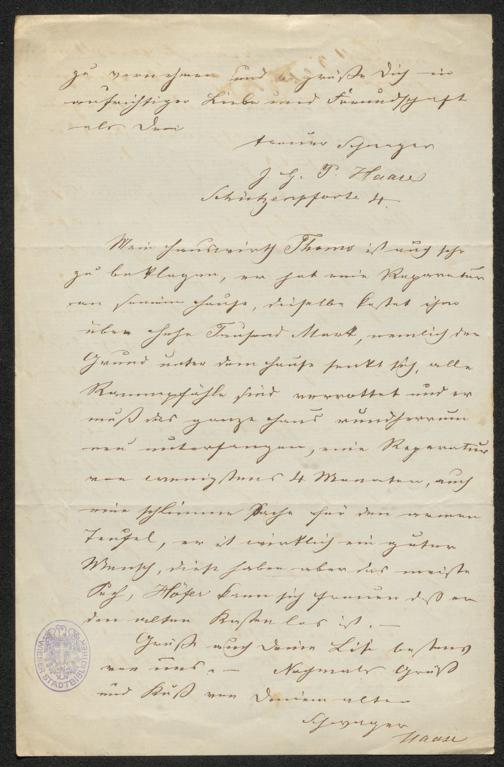 zu vernehmen und begrüße Dich in
aufrichtiger Liebe und Freundschaft
als Dein
treuer Schwager
J. G. P. Haase
Schützenpforte 4.
Mein Hauswirth Thoms ist auch sehr
zu beklagen, er hat eine Reparatur
an seinem Hause, dieselbe kostet ihm
über Tausend Mark, nemlich der
Grund unter dem Hause senkt sich, alle
Rammpfähle sind verrottet und er
muß das ganze Haus rundherrum
neu unterfangen, eine Reparatur
von wenigstens 4 Monaten, auch
eine schlimme Sache für den armen
Teufel, er ist wirklich ein guter
Mensch, diese haben aber das meiste
Pech, Höfer kann sich freuen daß er
den alten Kasten los ist. —
Grüß auch Deine Lise bestens
von uns. — Nochmals Gruß
und Kuß von Deinem alten
Schwager
Haase
WIENER STADTBIBLIOTHEK